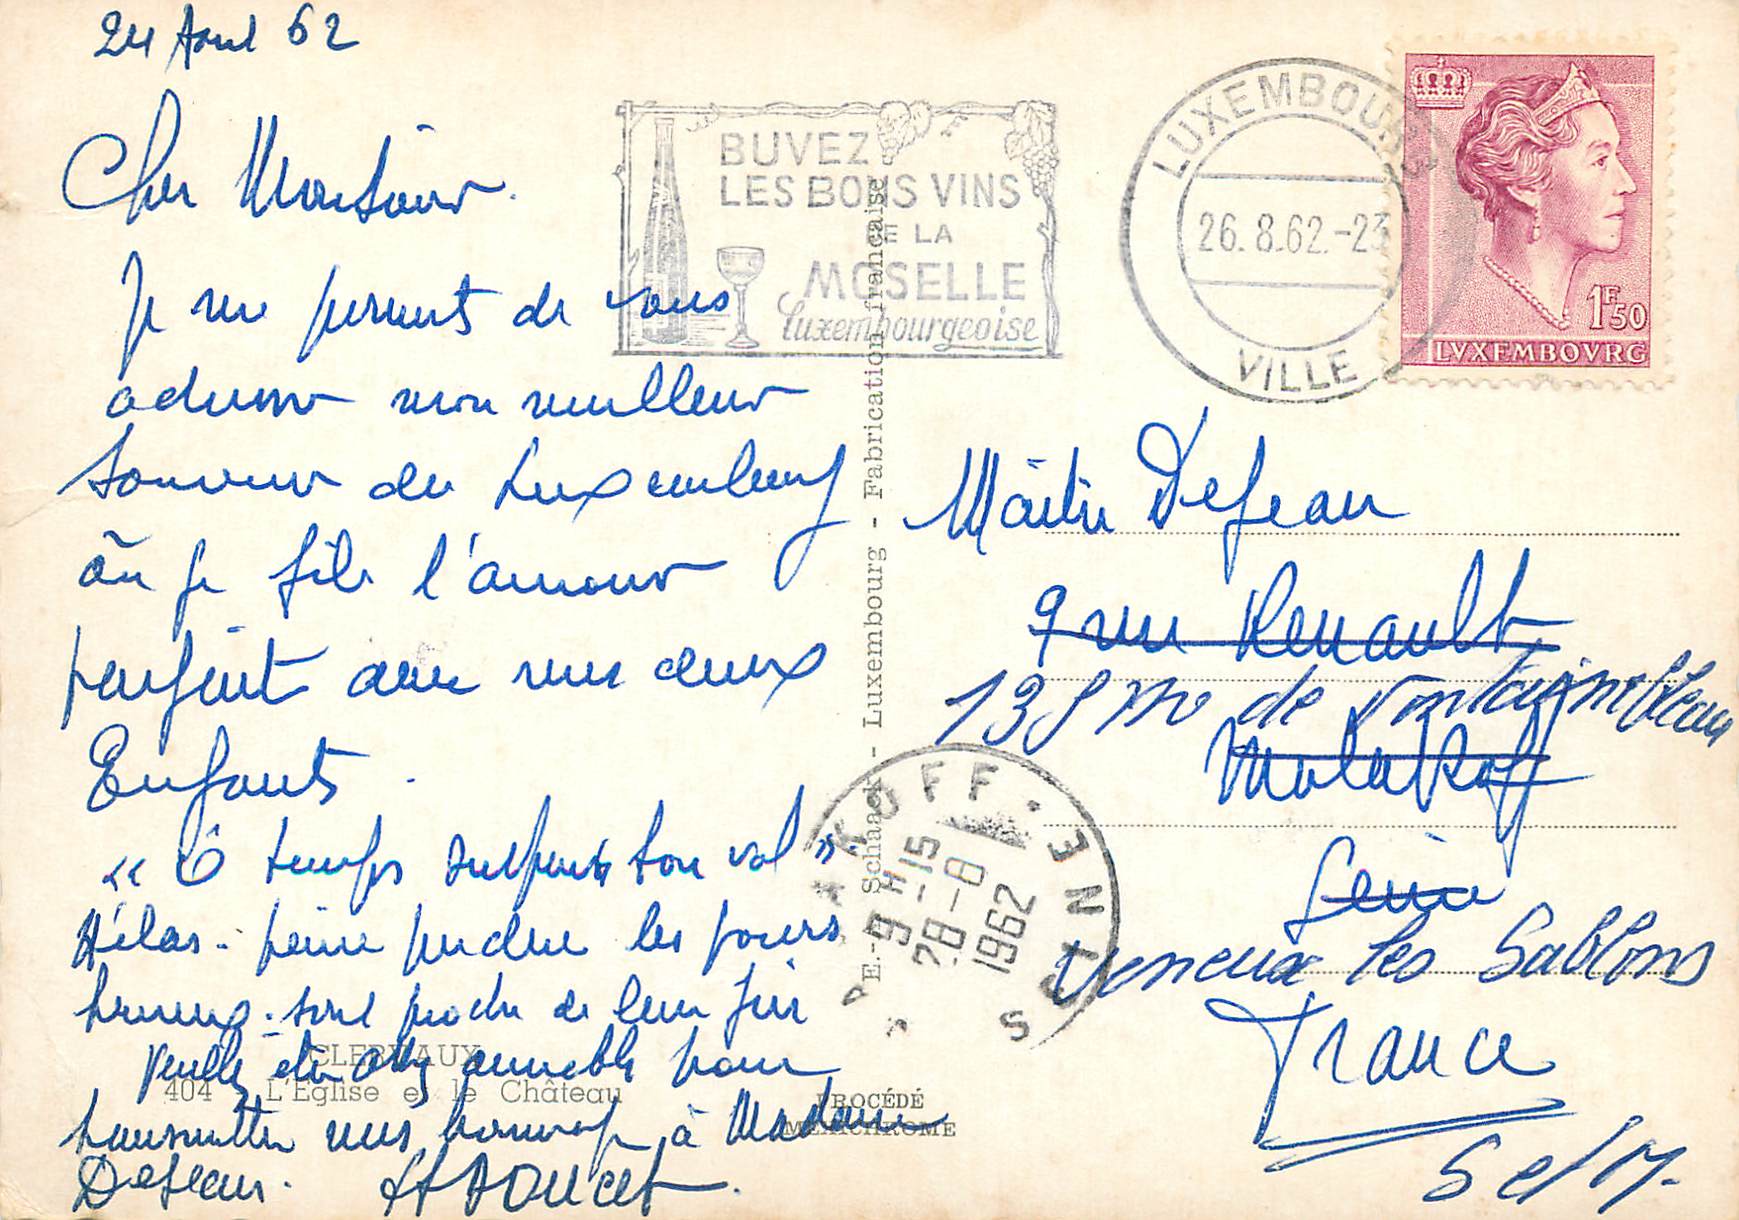 24 Août 62
Cher Monsieur.
Je me permets de vous
adresser mon meilleur
souvenir du Luxembourg
où je file l'amour
parfait avec mes deux
Enfants.
« ô temps suspens ton vol »
Hélas - peine perdue les jours
heureux - sont proche de leur fin
Veuillez être assez aimable pour
transmettre mes hommages à Madame
Dejean.
BUVEZ
LES BONS VINS
DE LA
MOSELLE
luxembourgeoise
LUXEMBOURG
26.8.62.-23
VILLE
1F50
LVXEMBOVRG
Maître Dejean
9 rue Renault
138 de Fontainebleau
Malakoff
Seine
Veneux les Sablons
France
S et M.
MALAKOFF · SEINE
9H15
28-8
1962
E.-A. Schaack - Luxembourg - Fabrication française
CLERVAUX
404 - L'Eglise et le Château
PROCÉDÉ
MEXICHROME